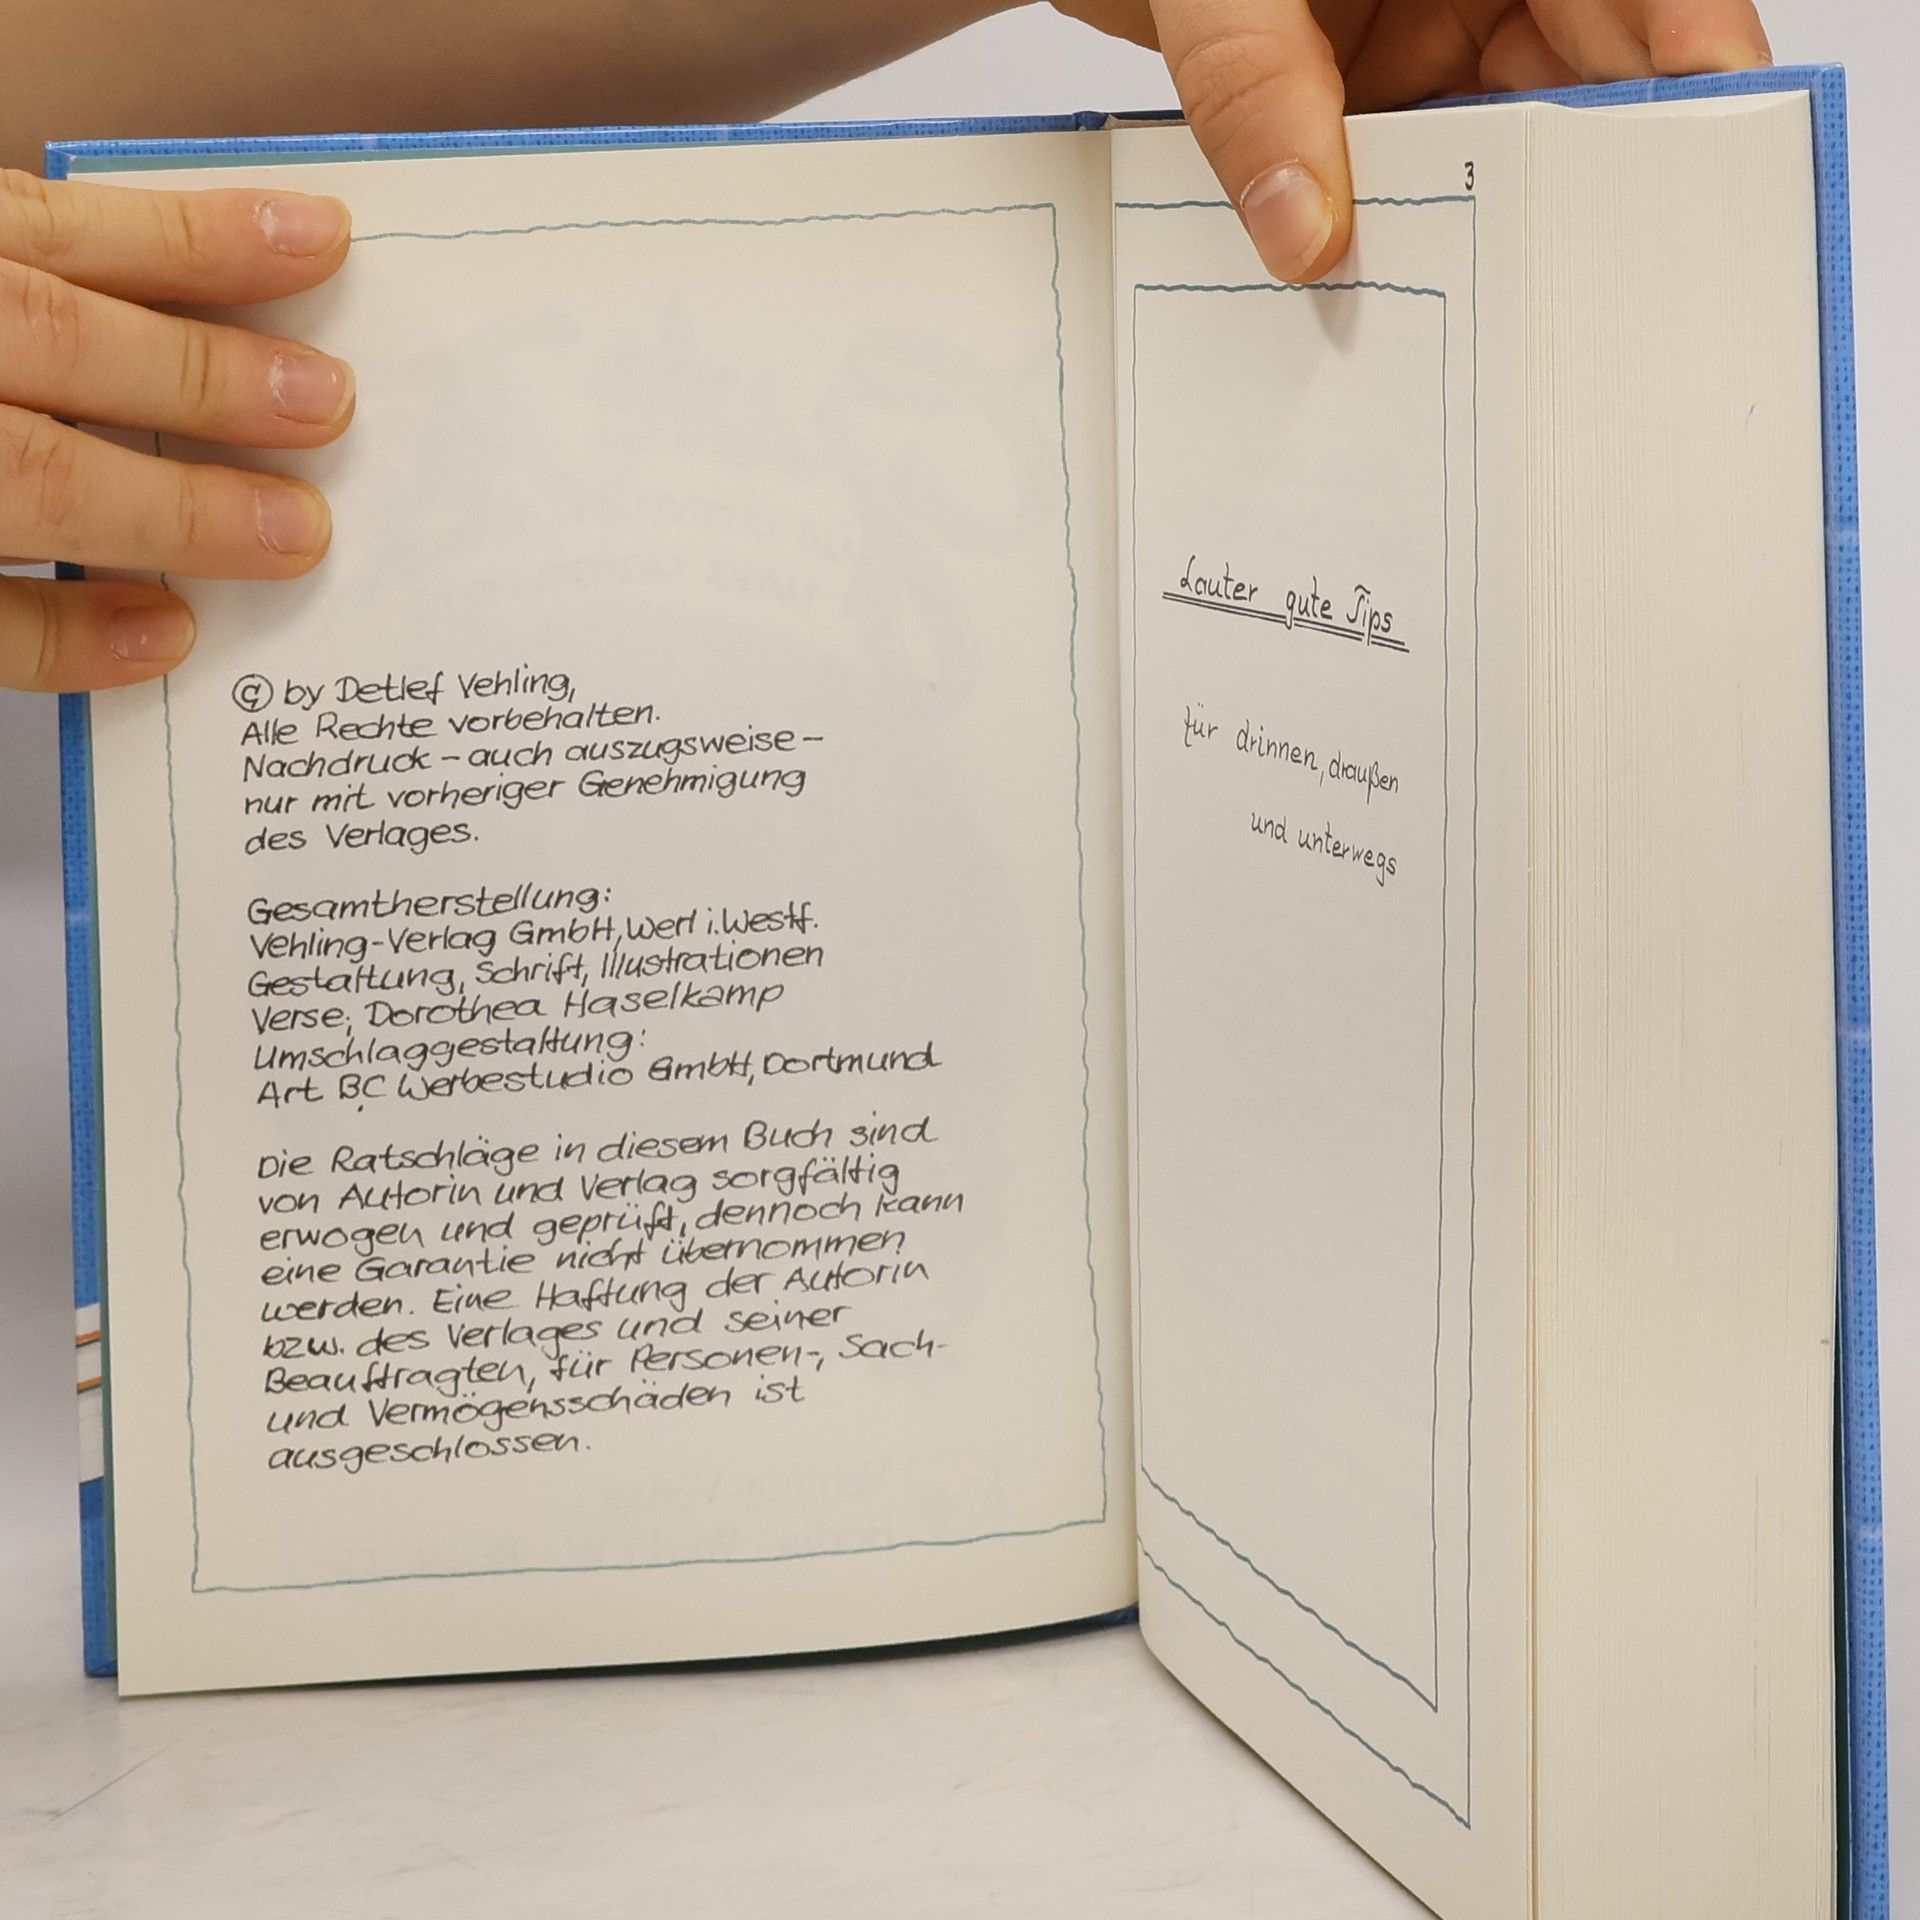 © by Detlef Vehling,
Alle Rechte vorbehalten.
Nachdruck – auch auszugsweise –
nur mit vorheriger Genehmigung
des Verlages.
Gesamtherstellung:
Vehling-Verlag GmbH, Werl i. Westf.
Gestaltung, Schrift, Illustrationen
Verse; Dorothea Haselkamp
Umschlaggestaltung:
Art BC Werbestudio GmbH, Dortmund
Die Ratschläge in diesem Buch sind
von Autorin und Verlag sorgfältig
erwogen und geprüft, dennoch kann
eine Garantie nicht übernommen
werden. Eine Haftung der Autorin
bzw. des Verlages und seiner
Beauftragten, für Personen-, Sach-
und Vermögensschäden ist
ausgeschlossen.
3
Lauter gute Tips
für drinnen, draußen
und unterwegs